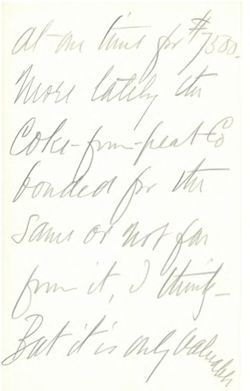 at one time for $7500.
More lately the
Coke-from-peat Co
bonded for the
same or not far
from it, I think—
But it is only valuable